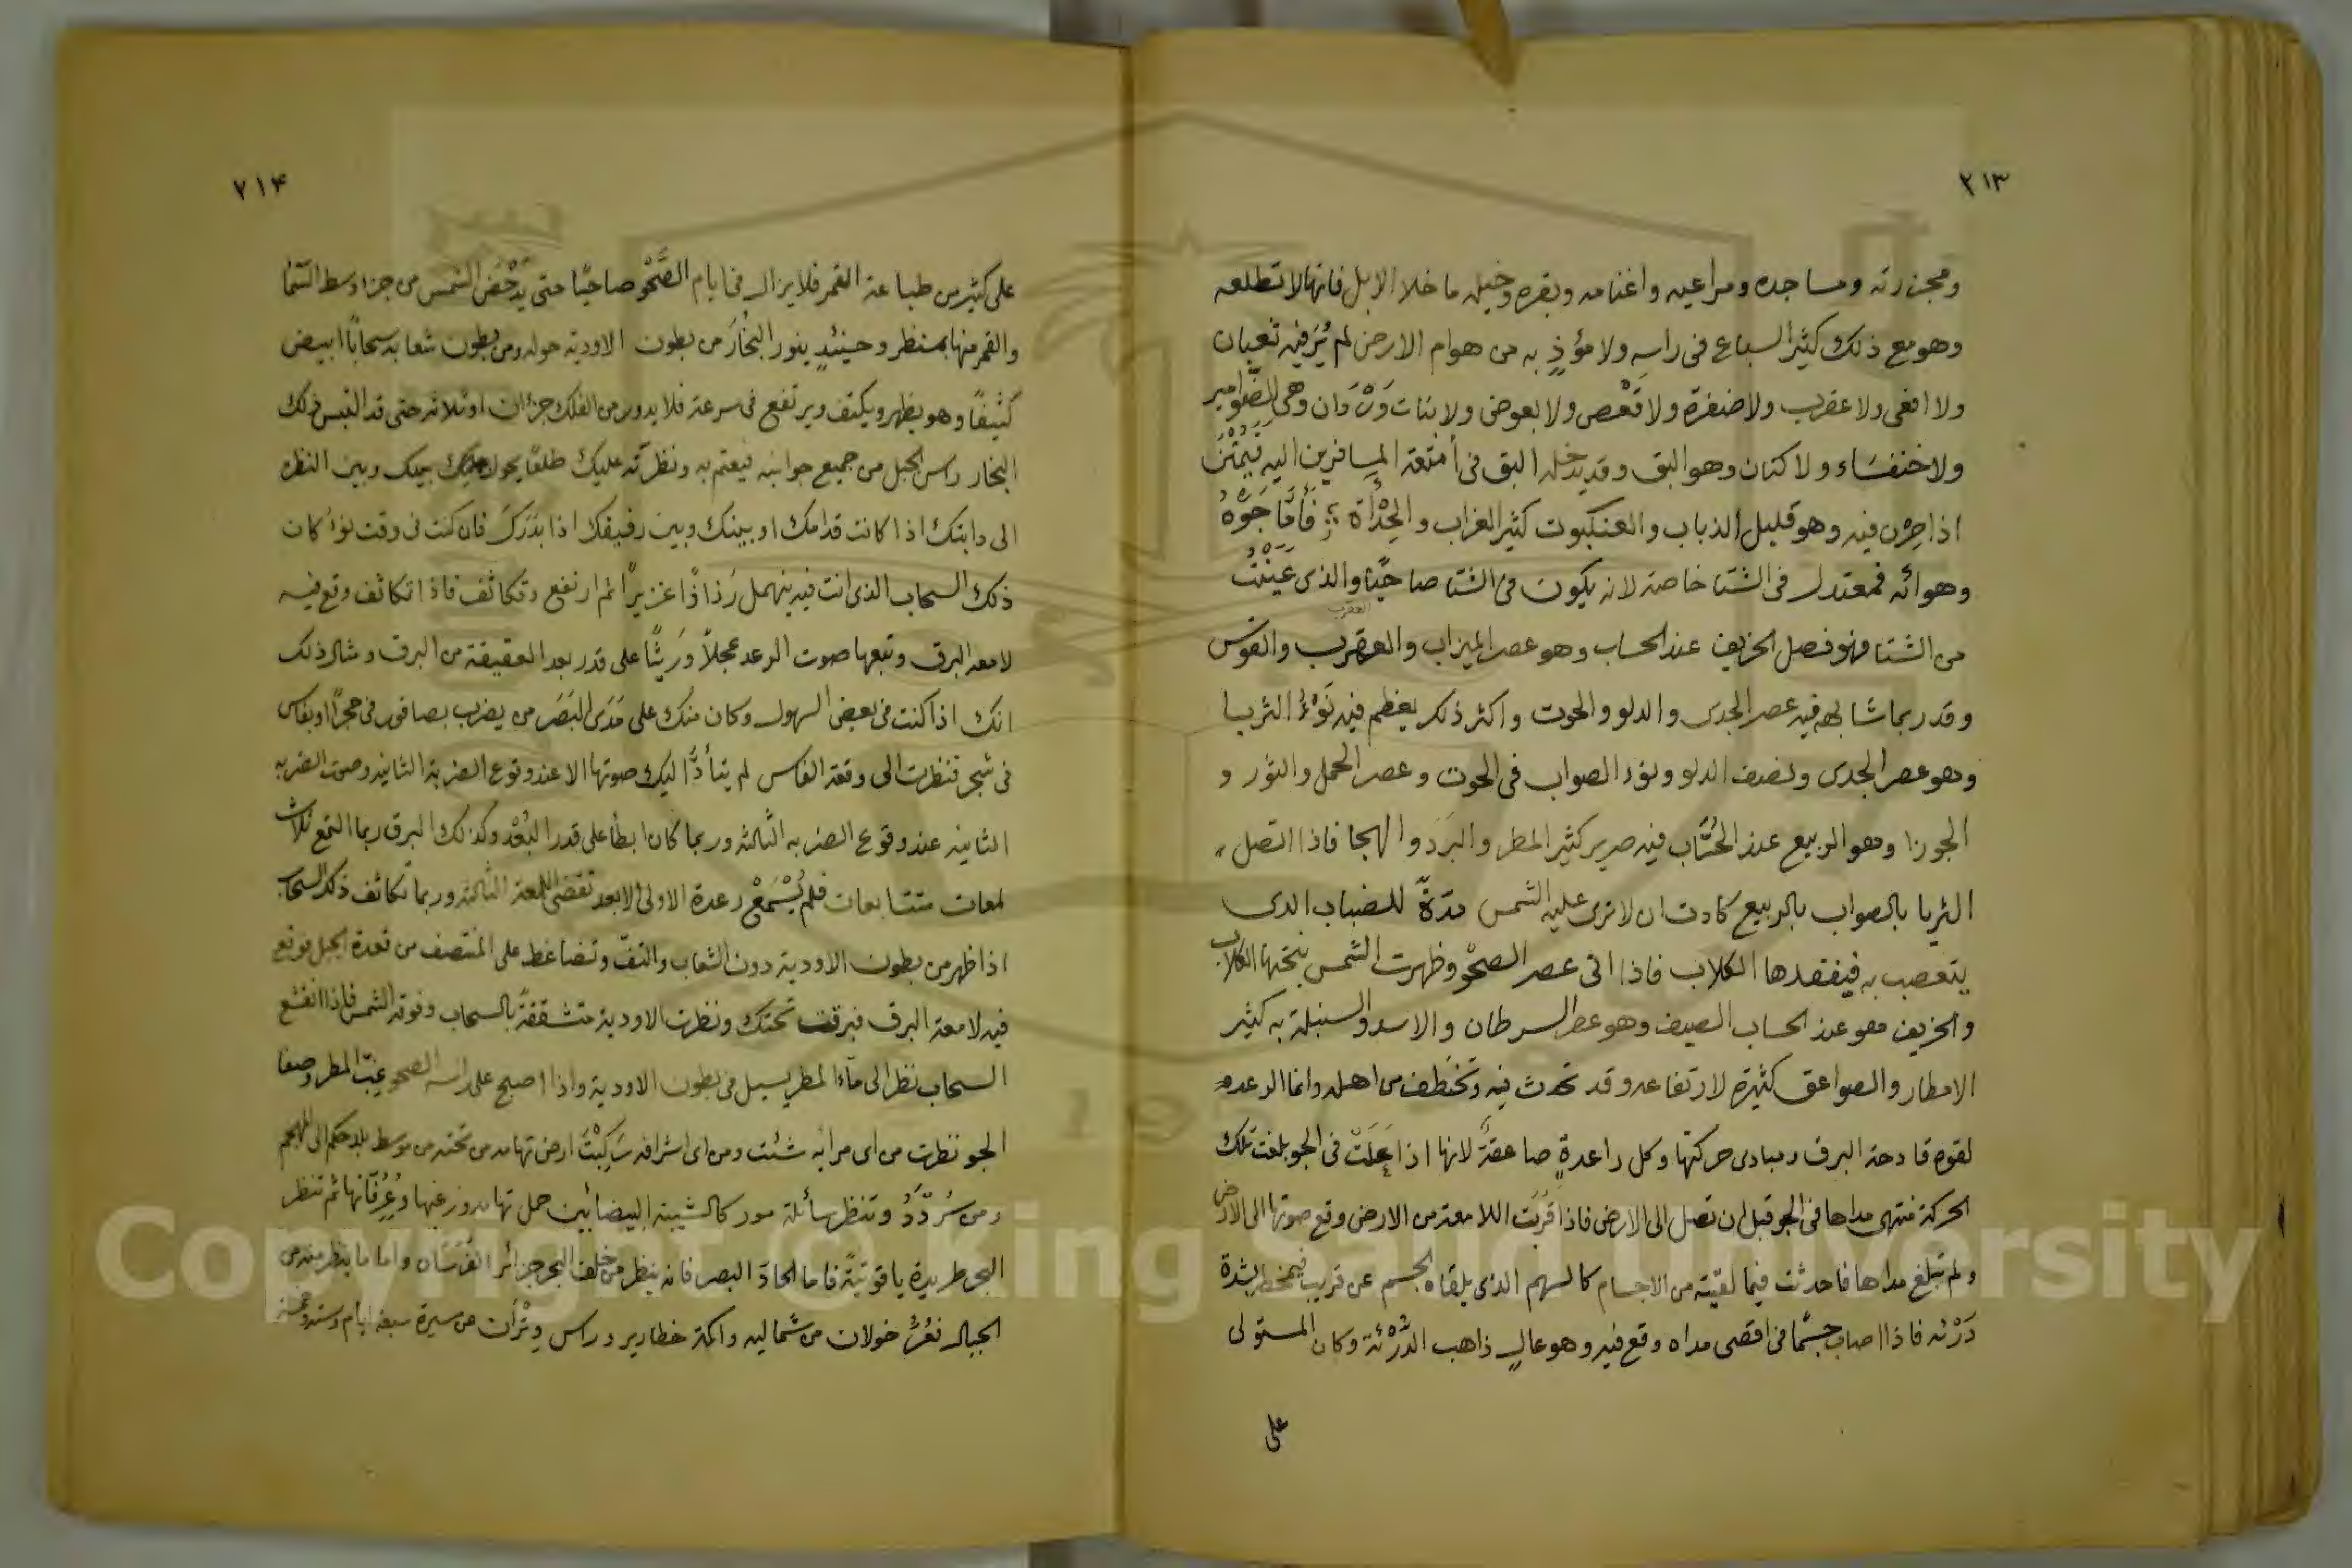 ٢١٣
ومجزرته ومساجده ومراعيه واغنامه وبقره وخيله ما خلا الابل فانها لا تطلعه
وهو مع ذلك كثير السباع فى راسه ولا مؤذٍ به من هوام الارض لم يُرَ فيه ثعبان
ولا افعى ولا عقرب ولا ضفرة ولا قعص ولا بعوض ولا بنات وَرْدَان وهى الصّوامير
ولا خنفسَاء ولا كتان وهو البق وقد يدخله البق فى أمتعة المسافرين اليه فَيَمُتْنَ
اذا صِرْن فيه وهو قليل الذباب والعنكبوت كثير الغراب والحِدْأة فَأَمَّا جَوّهُ
وهوائه فمعتدل فى الشتا خاصة لانه يكون فى الشتا صاحيًا والذى عَيَنْتُ
من الشتا فهو فصل الخريف عند الحساب وهو عصر الميزاب والعقرب والقوس
وقد ربما شابهه فيه عصر الجدى والدلو والحوت واكثر ذلك يعظم فيه نَوْءُ الثريا
وهو عصر الجدى ونصف الدلو ونوء الصواب فى الحوت وعصر الحمل والثور و
الجوزا وهو الربيع عند الحُسَّاب فيه صرير كثير المطر والبرَد والهجا فاذا اتصل
الثريا بالصواب بالربيع كادت ان لا ترى عليه الشمس مدّةً للضباب الذى
يتعصب به فيفقدها الكلاب فاذا اتى عصر الصحْو وظهرت الشمس نبحتها الكلاب
والخريف هو عند الحساب الصيف وهو عصر السرطان والاسد والسنبلة به كثير
الامطار والصواعق كثيرة لارتفاعه وقد تحدث فيه وتخطف من اهله وانما الوعده
لقوه قادحة البرق ومبادى حركتها وكل راعدةٍ صاعقةً لانها اذا عَلَتْ فى الجو بلغت تلك
الحركة منتهى مداها فى الجو قبل ان تصل الى الارض فاذا قَرُبَت اللامعة من الارض وقع صوتها الى الارض
ولم تبلغ مداها فاحدثت فيما لقيته من الاجسام كالسهم الذى يلقاه الجسم عن قريب فيمخط لشدة
دَرْئه فاذا اصاب جسمًا فى اقصى مداه وقع فيه وهو عالٍ ذاهب الدَّرْئة وكان المستولى
على
٢١٤
على كثير من طباعه القمر فلا يزال فى ايام الصَّحْو صاحيًا حتى يَدْحَض الشمس من جزاوسط السّما
والقمر منها بمنظر وحينئدٍ ينور البخَارَ من بطون الاودية حوله ومن بطون شعابه سحابًا ابيض
كثيفًا وهو يظهر ويكتف ويرتفع فى سرعة فلا يدور من الفلك جزءان او ثلاثه حتى قد التبس ذلك
البخار راس الجبل من جميع جوانبه فيعتم به ونظرته عليك طلعًا يحول بينك وبين النظر
الى دابتك اذا كانت قدامك او بينك وبين رفيقك اذا بَدَرَكَ فان كنت فى وقت نوءُ كان
ذلك السحاب الذى انت فيه ينهمل رُذاذًا غزيرًا ثم ارتفع وتكاثف فاذا تكاثف وقع فيه
لامعه البرق وتبعها صوت الرعد عجلًا ورَيثًا على قدر بعد العقيقة من البرق ومثال ذلك
انك اذا كنت فى بعض السهول وكان منك على مَدَى البَصَر من يضرب بصاقور فى حجرًا او بفاس
فى شجر فنظرت الى وقعة الفاس لم يتأدَّا اليك صوتها الا عند وقوع الضربة الثانيه وصوت الضربه
الثانيه عند وقوع الضربه الثالثه وربما كان ابطأ على قدر البُعْد وكذلك البرق ربما التمع ثلاث
لمعات متتابعات فلم يُسْمَعْ رعدة الاولى الا بعد تقضى اللمعة الثالثه وربما تكاثف ذلك السحاب
اذا ظهر من بطون الاودية دون الشعاب والتفّ وتضاغط على المنتصف من قعدة الجبل فوقع
فيه لامعة البرق فبرقت تحتك ونظرت الاودية متشققةً بالسحاب وفوقه الشمس فاذا انقشع
السحاب نظر الى مآء المطر يسيل فى بطون الاودية واذا اصبح على راسه الصحو غبّ المطر وصفا
الجو نظرت من اى مرآيه شئت ومن اى اشرافه رَكِبْتَ ارض تهامه من تحته من موسط بلد حكم الى المهجم
ومن سُردَّدُ وتنظر سائلة مور كالشيبة البيضا بين حمل تهامه وزغبها وعُرُقَانها ثم تنظر
البحر طريدة ياقوتيةً فاما الحادّ البصر فانه ينظر من خلف البحر جزائر الفُرْسَان واما ما ينظر منه من
الجبال فعُرُّ خولان من شماليه واكمة خطارير وراس وتْرَان من سيرة سبعة ايام وستة وخمسة